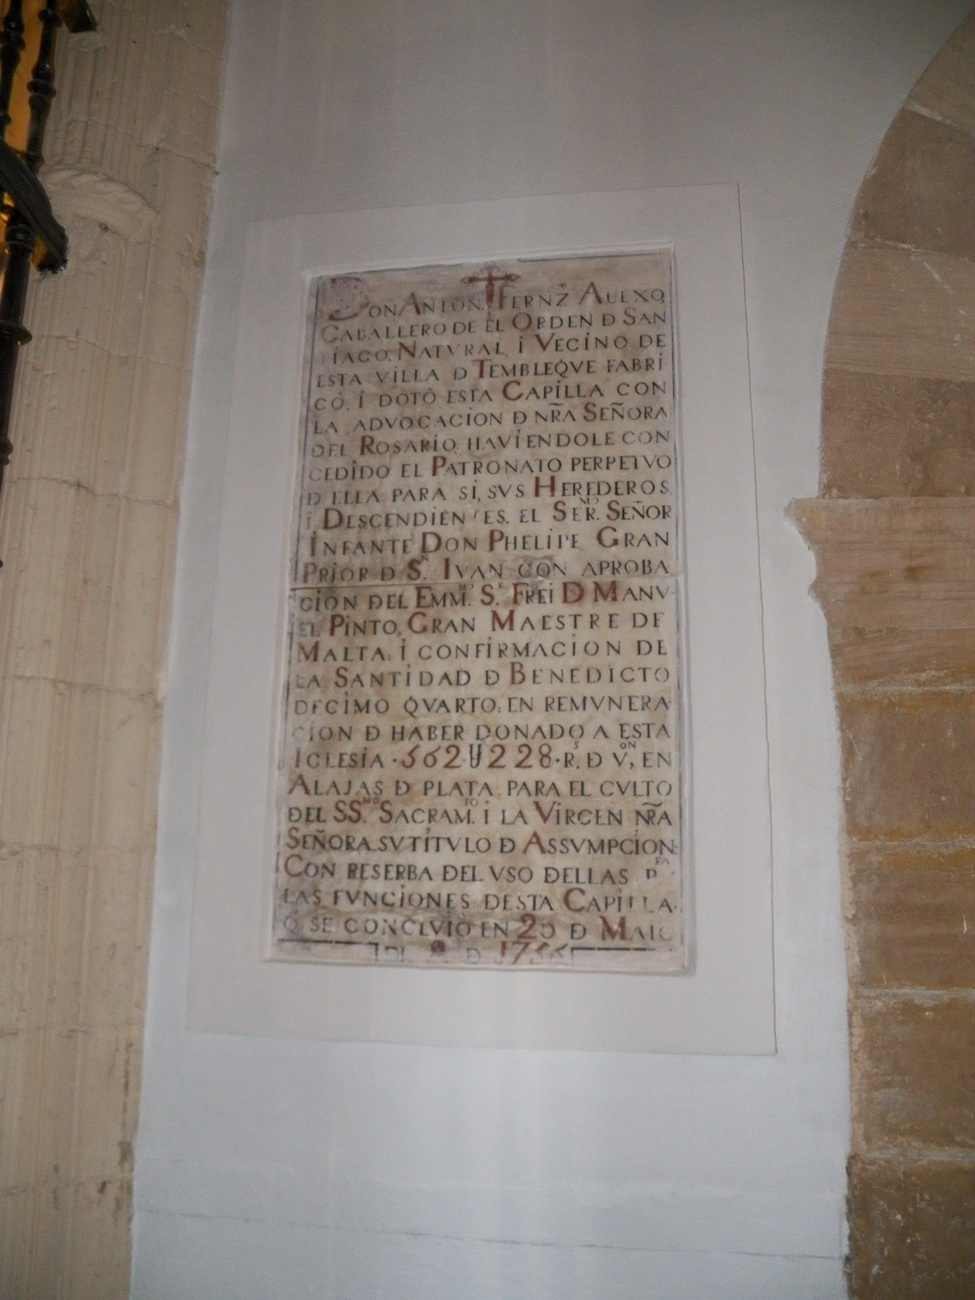 DON ANTON. FERNZ̃ AULXO
CABALLERO DE EL ORDEN D SAN
TIAGO, NATVRAL, i VECiNO DE
ESTA ViLLA D TEMBLEQVE FABRI
CÒ, i DOTÒ ESTA CAPiLLA CON
LA ADVOCACiON D NR̃A SEÑORA
DEL ROSARiO, HAViENDOLE CON
CEDiDO EL PATRONATO PERPETVO
D ELLA PARA SI, SVS HEREDEROS
i DESCENDiENTES. EL SER.MO SEÑOR
INFANTE DON PHELiPE GRAN
PRiOR D S.N IVAN CON APROBA
CiON DEL EMM.O S.R FREi D MANV
EL PINTO, GRAN MAESTRE DE
MALTA, i CONFiRMACiON DE
LA SANTiDAD D BENEDICTO
DECiMO QVARTO; EN REMVNERA
CiON D HABER DONADO A ESTA
IGLESiA ·562U228·R.S D V.ON, EN
ALAJAS D PLATA, PARA EL CVLTO
DEL SS.MO SACRAM.TO i LA VIRGEN NR̃A
SEÑORA SVTÍTVLO D ASSVMPCiON:
CON RESERBA DEL VSO DELLAS P.RA
LAS FVNCiONES DESTA CAPiLLA,
Q̃ SE CONCLVIÒ EN 25 D MAIO
DEL D 1756